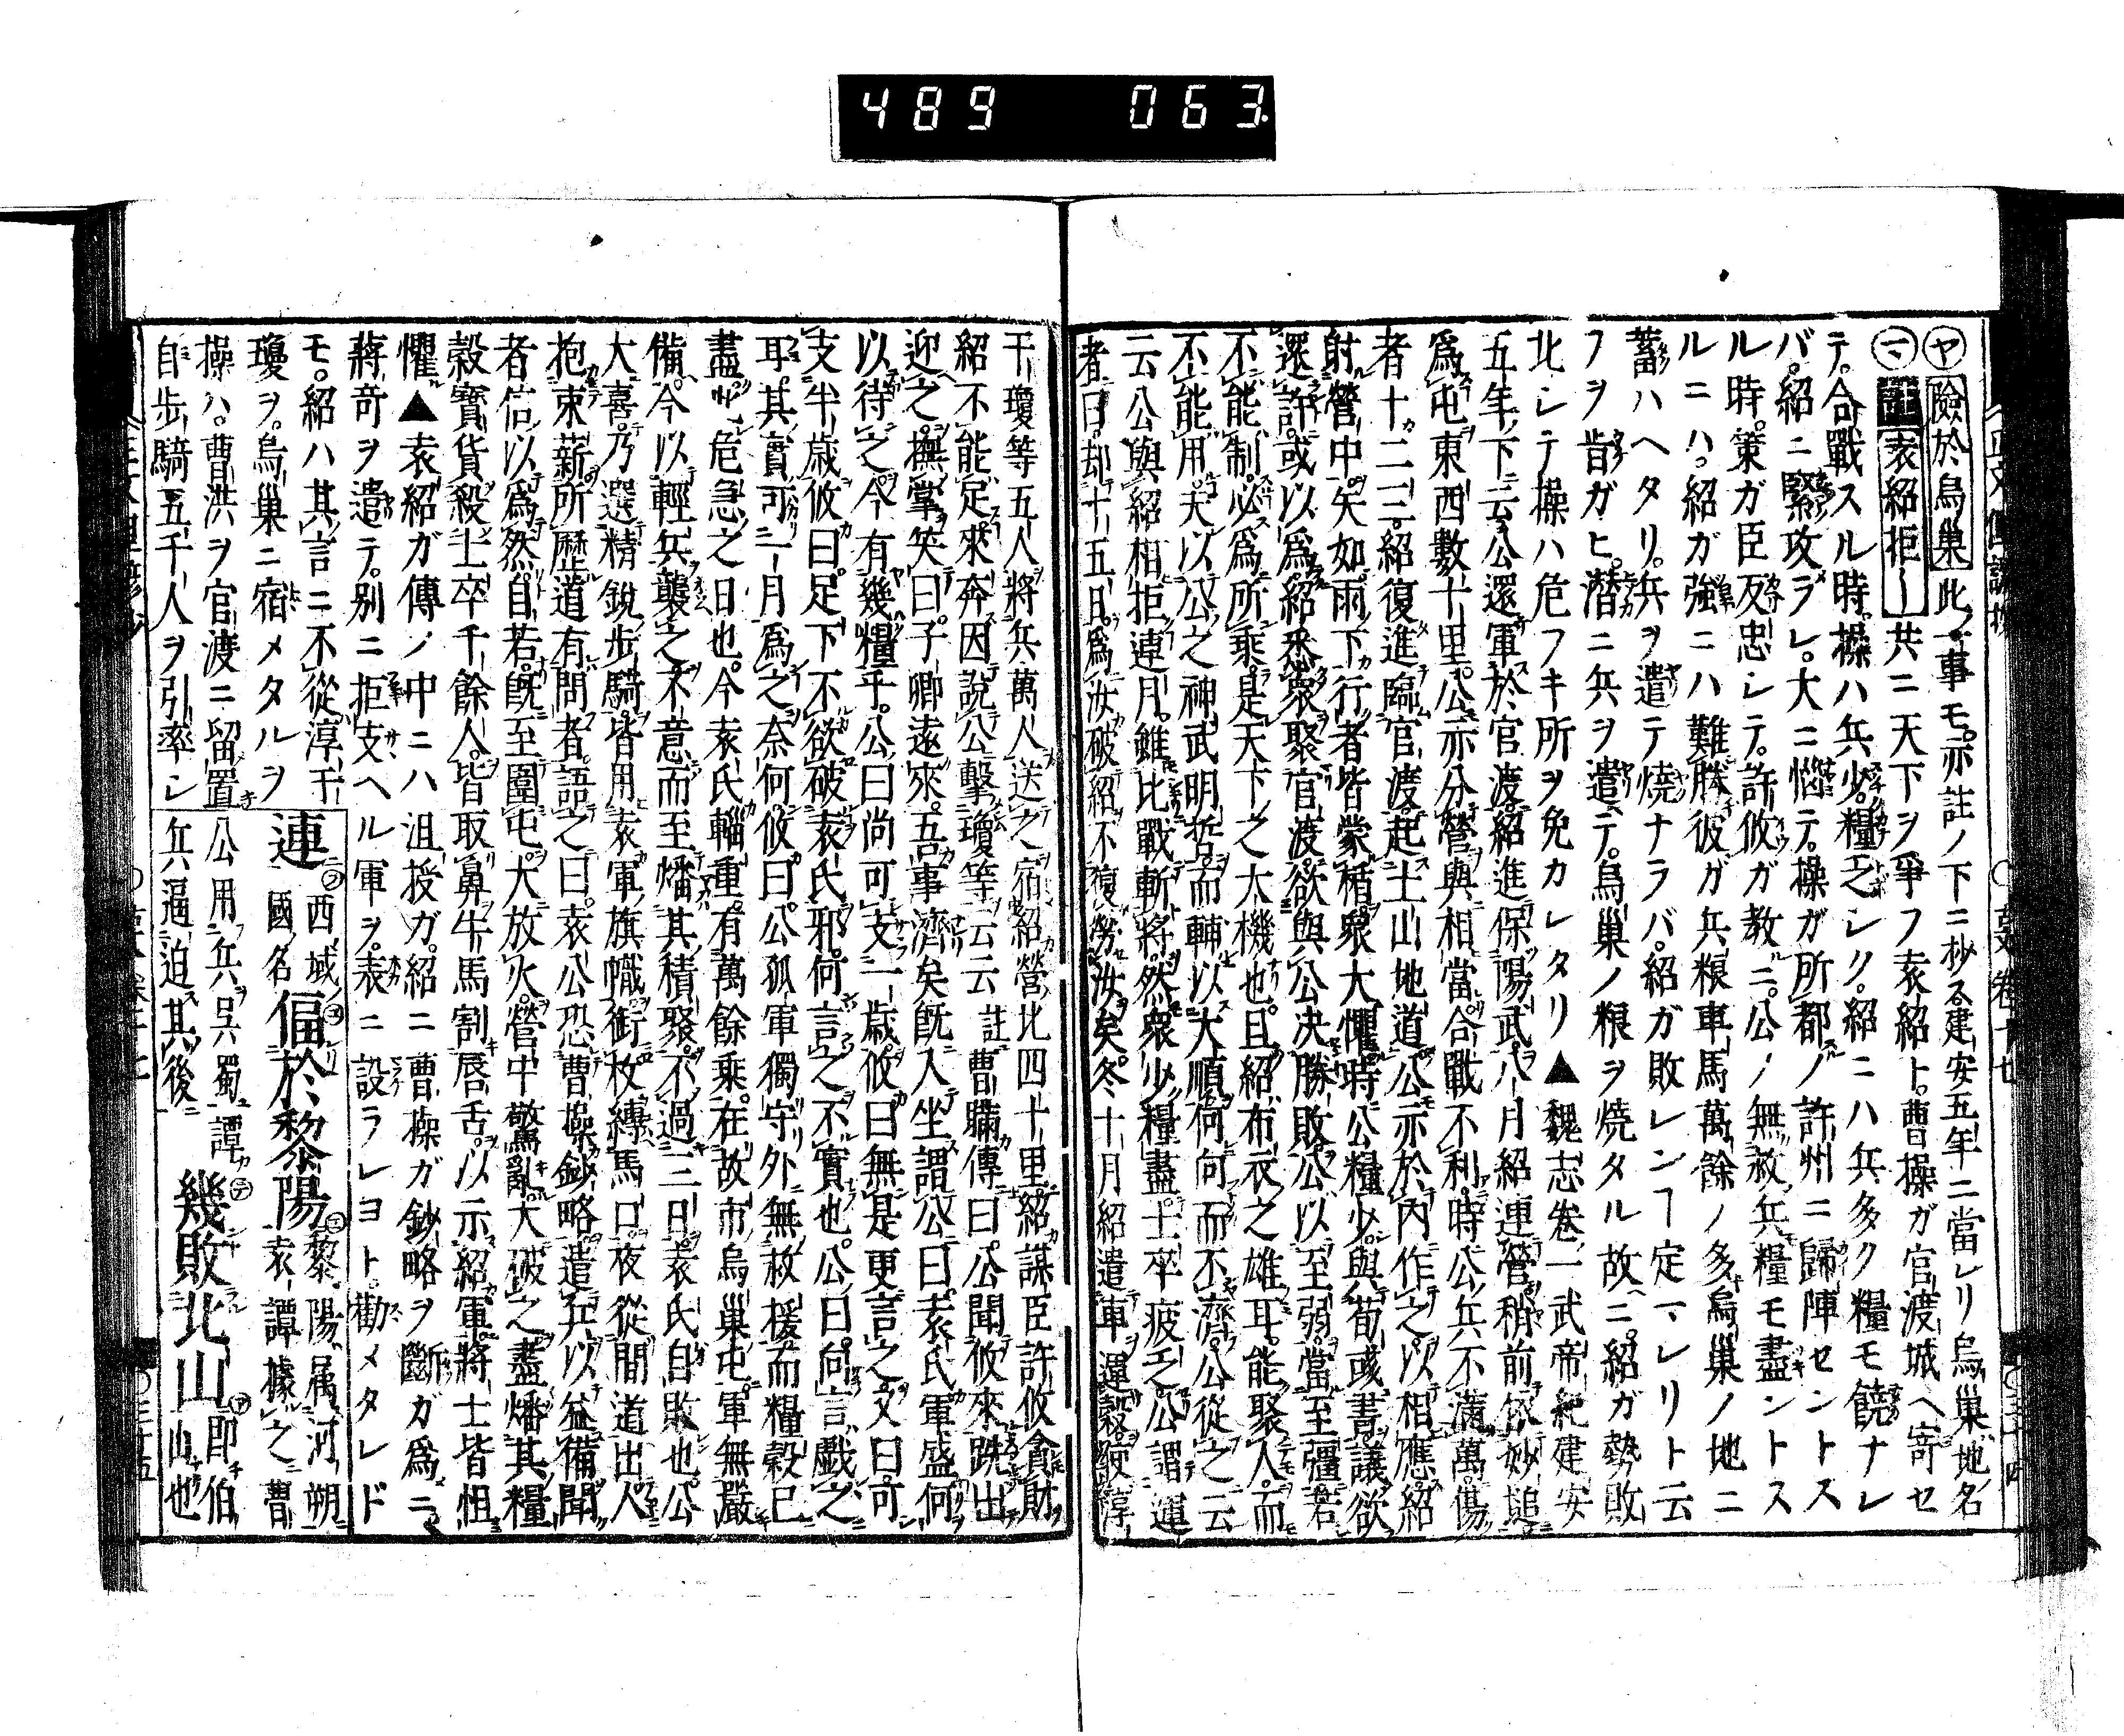 489 063
㋳險於烏巢此ノ事モ亦註ノ下ニ抄ス建安五年ニ當レリ烏巢ハ地ノ名
㋮註袁紹拒―共ニ天下ヲ爭フ袁紹ト曹操ガ官渡城ヘ寄セ
テ合戰スル時操ハ兵少糧乏シク紹ニハ兵多ク糧モ饒ナレ
バ紹ニ緊攻ラレ大ニ惱テ操ガ所都ノ許州ニ歸陣セントス
ル時策ガ臣反忠シテ許攸ガ教ニ公ノ無救兵糧モ盡ントス
ルニハ紹ガ強ニハ難勝彼ガ兵粮車馬萬餘ノ多烏巢ノ地ニ
蓄ハヘタリ兵ヲ遣テ燒ナラバ紹ガ敗レンヿ定マレリト云
フヲ肯ガヒ潜ニ兵ヲ遣テ烏巢ノ粮ヲ燒タル故ニ紹ガ勢敗
北シテ操ハ危フキ所ヲ免カレタリ▲魏志卷一武帝紀建安
五年下云公還軍於官渡紹進保陽武八月紹連營稍前依沙塠
爲屯東西數十里公亦分營與相當合戰不利時公兵不滿萬傷
者十二三紹復進臨官渡起土山地道公亦於内作之以相應紹
射營中矢如雨下行者皆蒙楯衆大懼時公糧少與荀彧書議欲
還許彧以爲紹悉衆聚官渡欲與公決勝敗公以至弱當至彊若
不能制必爲所乘是天下之大機也且紹布衣之雄耳能聚人而
不能用夫以公之神武明哲而輔以大順何向而不濟公從之云
云公與紹相拒連月雖比戰斬將然衆少糧盡士卒疲乏公謂運
者曰却十五日爲汝破紹不復勞汝矣冬十月紹遣車運穀使淳
于瓊等五人將兵萬人送之宿紹營北四十里紹謀臣許攸貪財
紹不能足來奔因說公擊瓊等云云註曹瞞傳曰公聞攸來跣出
迎之撫掌笑曰子卿遠來吾事濟矣既入坐謂公曰袁氏軍盛何
以待之今有幾糧乎公曰尚可支一歲攸曰無是更言之又曰可
支半歲攸曰足下不欲破袁氏邪何言之不實也公曰向言戲之
耳其實可一月爲之奈何攸曰公孤軍獨守外無救援而糧穀已
盡此危急之日也今袁氏輜重有萬餘乘在故市烏巢屯軍無嚴
備今以輕兵襲之不意而至燔其積聚不過三日袁氏自敗也公
大喜乃選精銳步騎皆用袁軍旗幟銜枚縛馬口夜從間道出人
抱束薪所歷道有問者語之曰袁公恐曹操鈔略遣兵以益備聞
者信以爲然自若既至圍屯大放火營中驚亂大破之盡燔其糧
穀寶貨殺士卒千餘人皆取鼻牛馬割唇舌以示紹軍將士皆怛
懼▲袁紹ガ傳ノ中ニハ沮授ガ紹ニ曹操ガ鈔略ヲ斷ガ爲ニ
蔣奇ヲ遣テ別ニ拒支ヘル軍ヲ表ニ設ラレヨト勸メタレド
モ紹ハ其言ニ不從淳于
瓊ヲ烏巢ニ宿メタルヲ
操ハ曹洪ヲ官渡ニ留置
自步騎五千人ヲ引率シ
連㋶西域ノ國ノ名偪於黎陽㋓黎陽屬河朔袁譚據之曹
公用兵吳蜀譚兵逼迫其後
幾敗北山㋐即伯山也